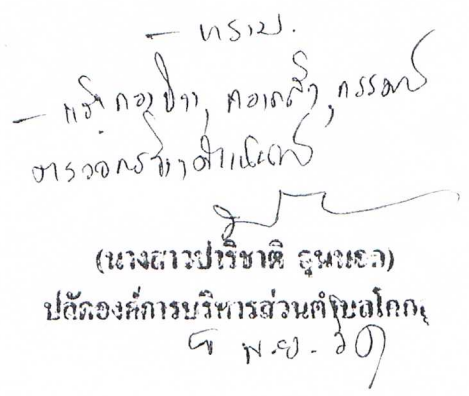 - ทราบ.
- แจ้งกองช่าง, กองคลัง, กรรมการ
ตรวจการจ้างดำเนินการ
(นางสาวปาริชาติ
ปลัดองค์การบริหารส่วนตำบลโคก
พ.ย.